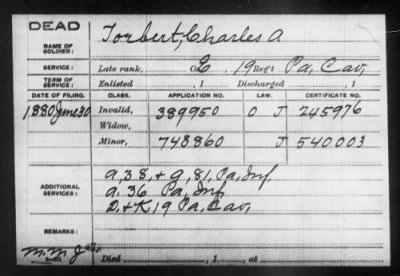 DEAD
NAME OF SOLDIER: Torbert, Charles A
SERVICE: Late rank, Co. E, 19 Reg't Pa, Cav,
TERM OF SERVICE: Enlisted , 1 Discharged , 1
DATE OF FILING. CLASS. APPLICATION NO. LAW. CERTIFICATE NO.
1880 June 30 Invalid, 389950 O J 245976
Widow,
Minor, 748860 J 540003
ADDITIONAL SERVICES:
A, 38, + G, 81, Pa, Inf,
A. 36 Pa, Inf,
D, + K, 19 Pa. Cav,
REMARKS:
Died , 1 , at